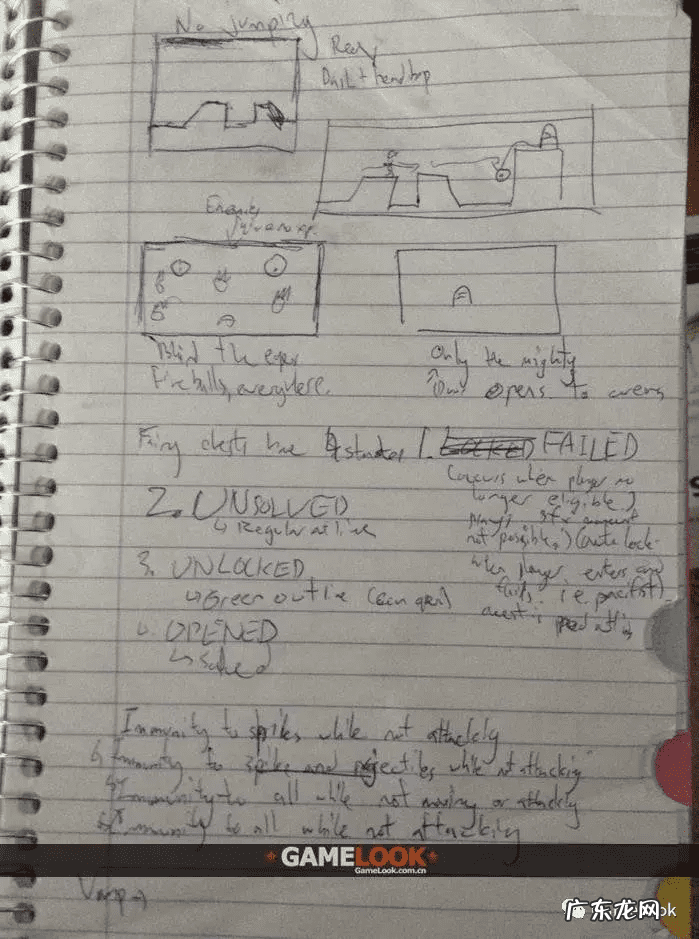 No jumping
Dash + head hop
Enemy
Blind the eyes
Fireballs, everywhere.
Only the mighty
opens to
Fairy chests have 4 states 1. LOCKED FAILED
(occurs when player no
longer eligible.)
2. UNSOLVED
↳ Regular outline
not possible.)
when player enters and
fails. i.e. pacifist)
3. UNLOCKED
↳ Green outline (can open)
OPENED
↳ Solved
Immunity to spikes while not attacking
↳ Immunity to spike and projectiles while not attacking
↳ Immunity to all while not moving or attacking
↳ Immunity to all while not attacking
GAMELOOK
GameLook.com.cn
Vamp →
广东龙网
ok